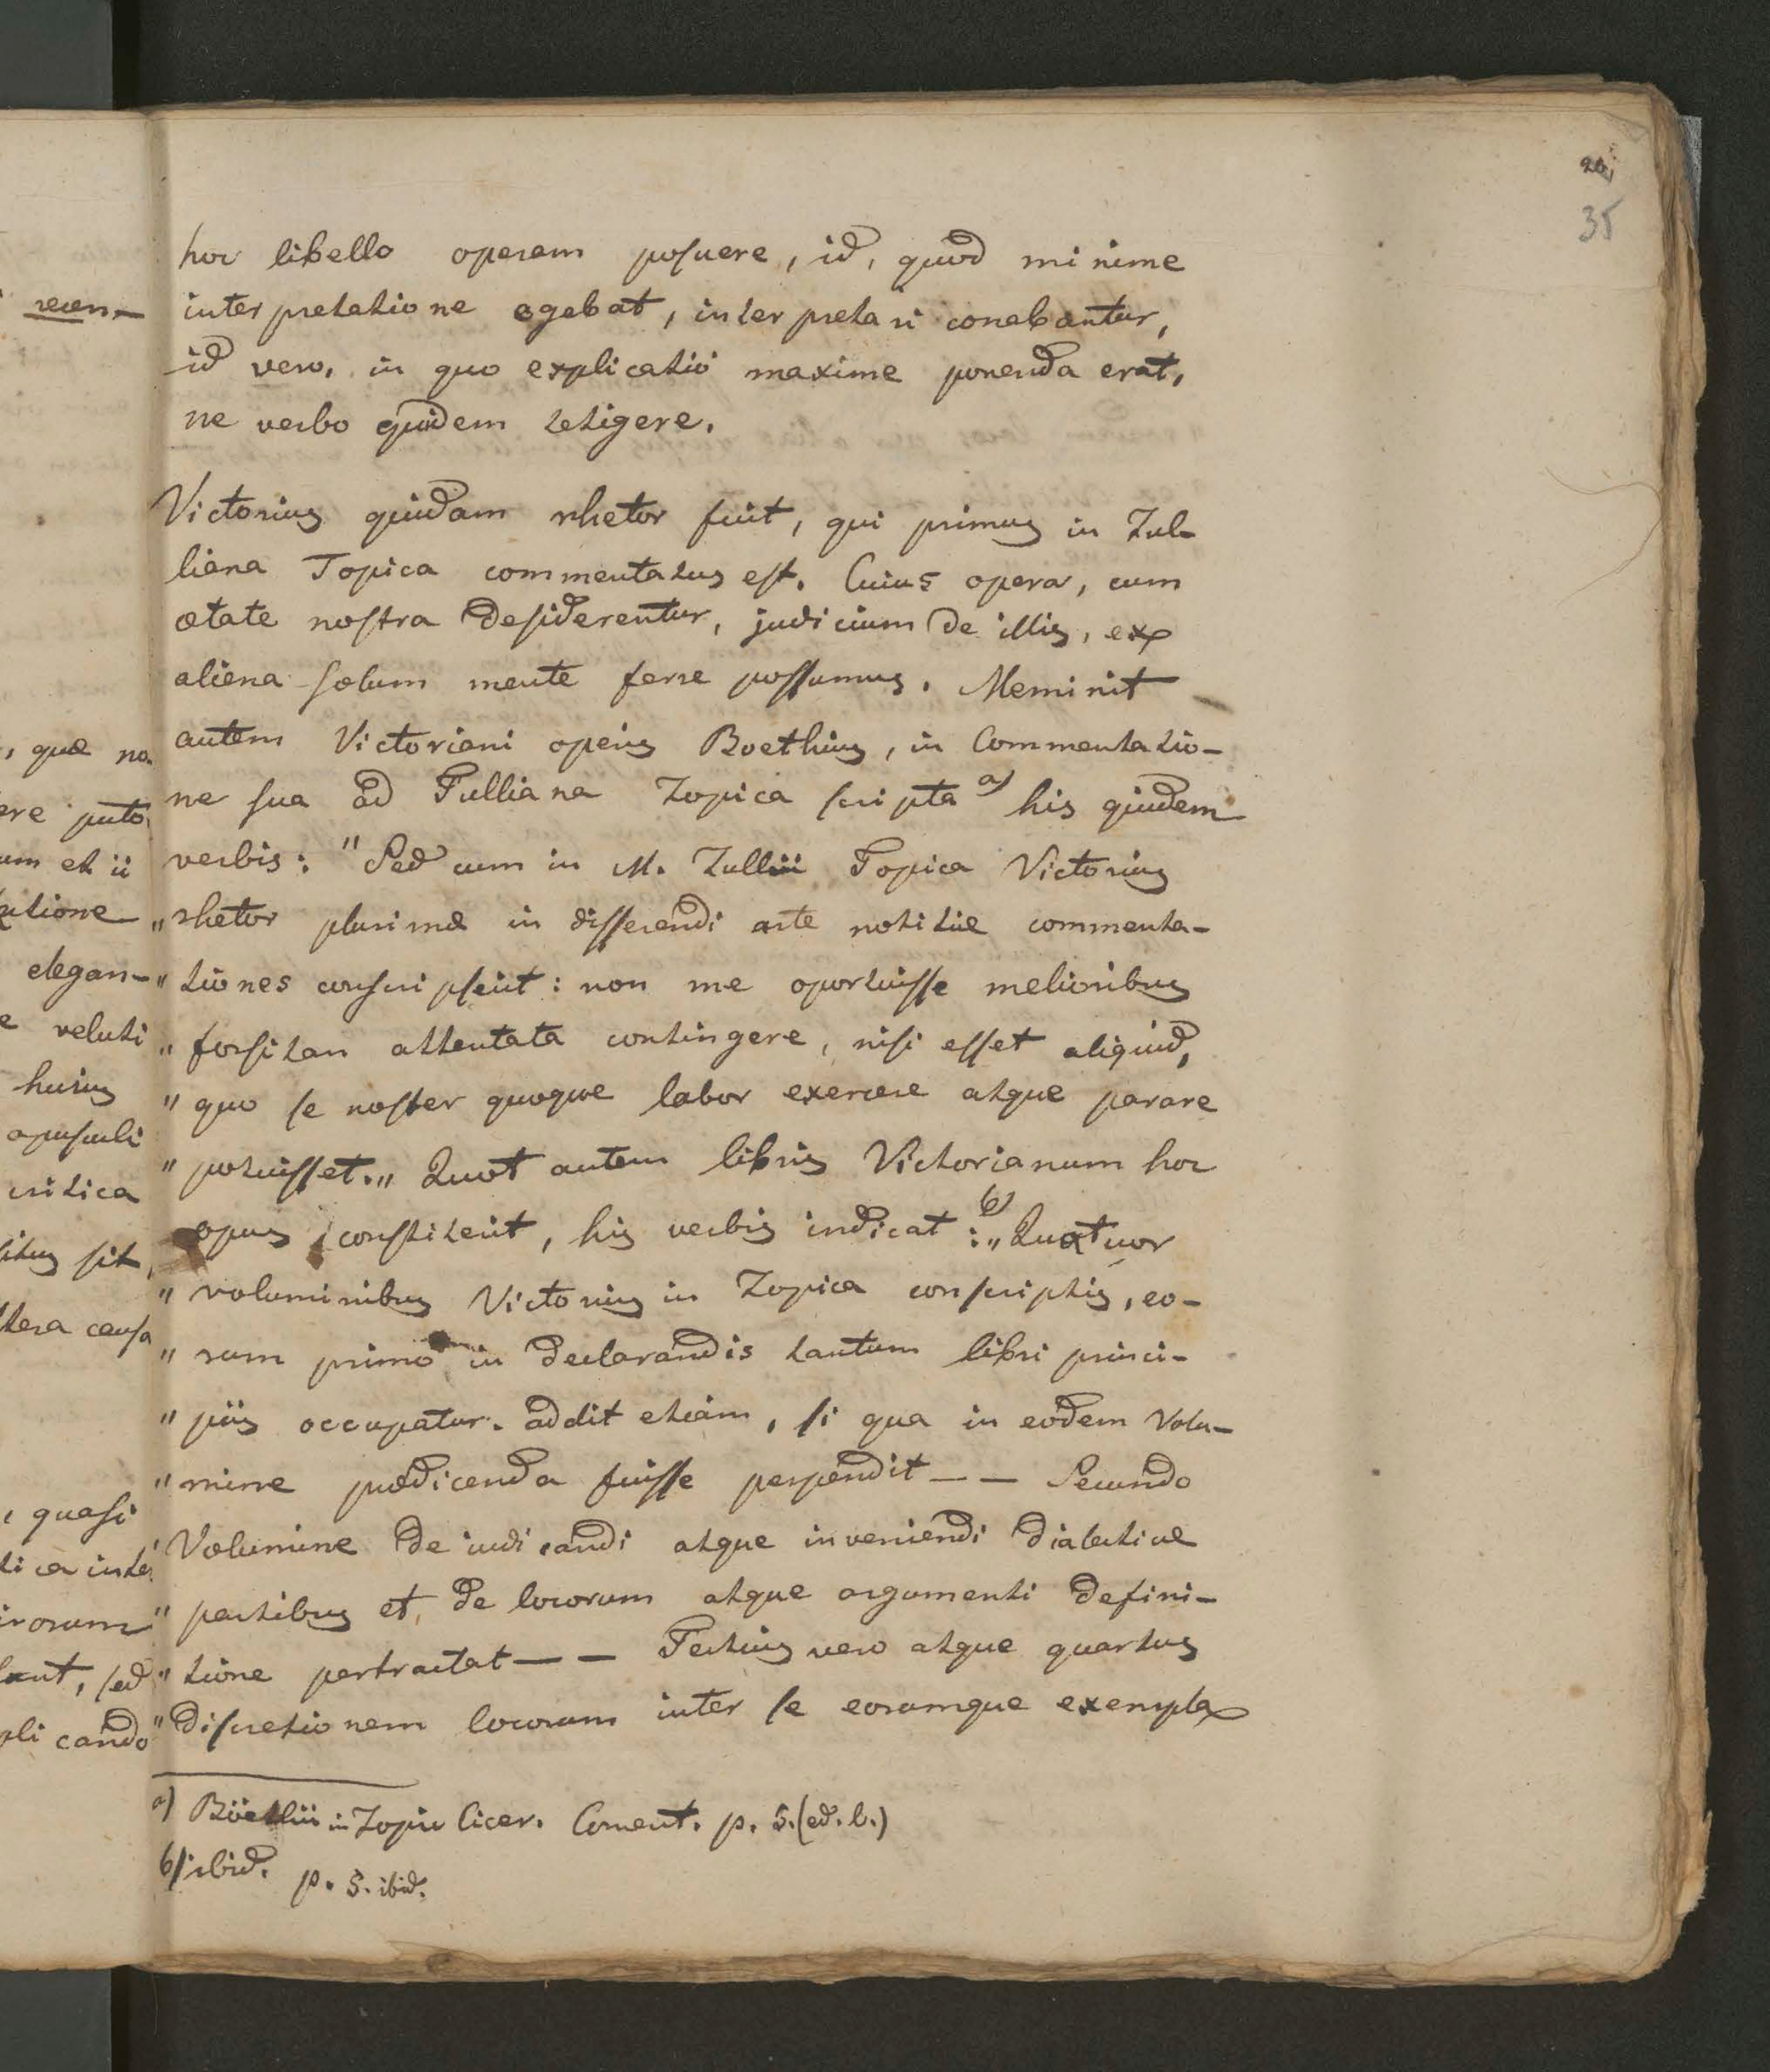 26.
35
hoc libello operam posuere, id, quod minime
interpretatione egebat, interpretari conabantur,
id vero, in quo explicatio maxime ponenda erat,
ne verbo quidem tetigere.
Victorius quidam rhetor fuit, qui primus in Tul-
liana Topica commentatus est. Cuius opera, cum
ætate nostra desiderentur, judicium de illis, ex
aliena solum mente ferre possumus. Meminit
autem Victoriani operis Boethius, in Commentatio-
ne sua ad Tulliana Topica scripta a) his quidem
verbis: "Sed cum in M. Tullii Topica Victorius
"rhetor plurimæ in disserendi arte notitiæ commenta-
"tiones conscripserit: non me oportuisse melioribus
"forsitan attentata contingere, nisi esset aliquid,
"quo se noster quoque labor exercere atque parare
"potuisset.„ Quot autem libris Victorianum hoc
opus constiterit, his verbis indicat b): „Quatuor
"voluminibus Victorius in Topica conscriptis, eo-
"rum primo in declarandis tantum libri princi-
"piis occupatur. addit etiam, si qua in eodem Volu-
"mine prædicenda fuisse perpendit — — Secundo
"Volumine de iudicandi atque inveniendi dialecticæ
"partibus et de locorum atque argumenti defini-
"tione pertractat — — Tertius vero atque quartus
"discretionem locorum inter se eorumque exempla
a) Böethii in Topic Cicer. Coment. p. 5. (ed. b.)
b) ibid. p. 5. ibid.
recen-
, quæ no
ere puto
um et ii
atione
elegan-
e veluti
huius
opusculi
critica
situs sit,
tera causa
, quasi
tica inte
irorum
lant, sed
pli cando